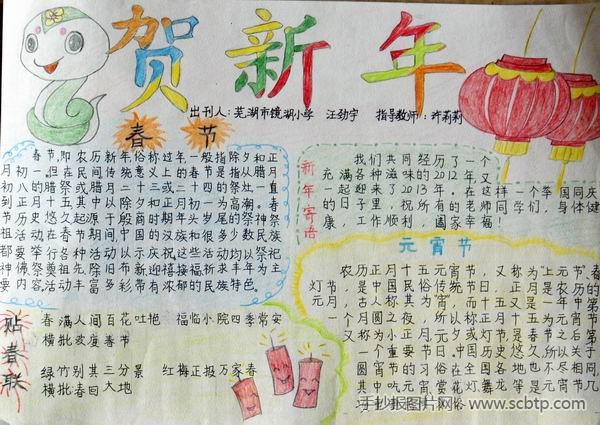 贺新年
出刊人：芜湖市镜湖小学 汪劲宇 指导教师：许莉莉
春节
春节,即农历新年俗称过年一般指除夕和正
月初一.但在民间传统意义上的春节是指从腊月
初八的腊祭或腊月二十三或二十四的祭灶一直
到正月十五其中以除夕和正月初一为高潮。春
节历史悠久起源于殷商时期年头岁尾的祭神祭
祖活动在春节期间,中国的汉族和很多少数民族
都要举行各种活动以示庆祝这些活动均以祭祀
神佛祭奠祖先除旧布新迎禧接福祈求丰年为主
要内容活动丰富多彩带有浓郁的民族特色。
新年寄语
我们共同经历了一个
充满各种滋味的2012年又
一起迎来了2013年。在这样一个举国同庆
的日子里，祝所有的老师同学们，身体健
康，工作顺利，阖家幸福！
元宵节
农历正月十五元宵节，又称为"上元节"、春
灯节，是中国民俗传统节日。正月是农历的
元月，古人称其为宵，而十五又是一年中第
一个月圆之夜，所以称正月十五为元宵节
又称为小正月、元夕或灯节，是春节之后第
一个重要节日。中国历史悠久，所以关于
圆宵节的习俗在全国各地也不尽相同，
其中吃元宵、赏花灯、舞龙等是元宵节几
贴春联
春满人间百花吐艳 福临小院四季常安
横批欢度春节
绿竹别其三分景 红梅正报万家春
横批春回大地
手抄报图片网 www.scbtp.com